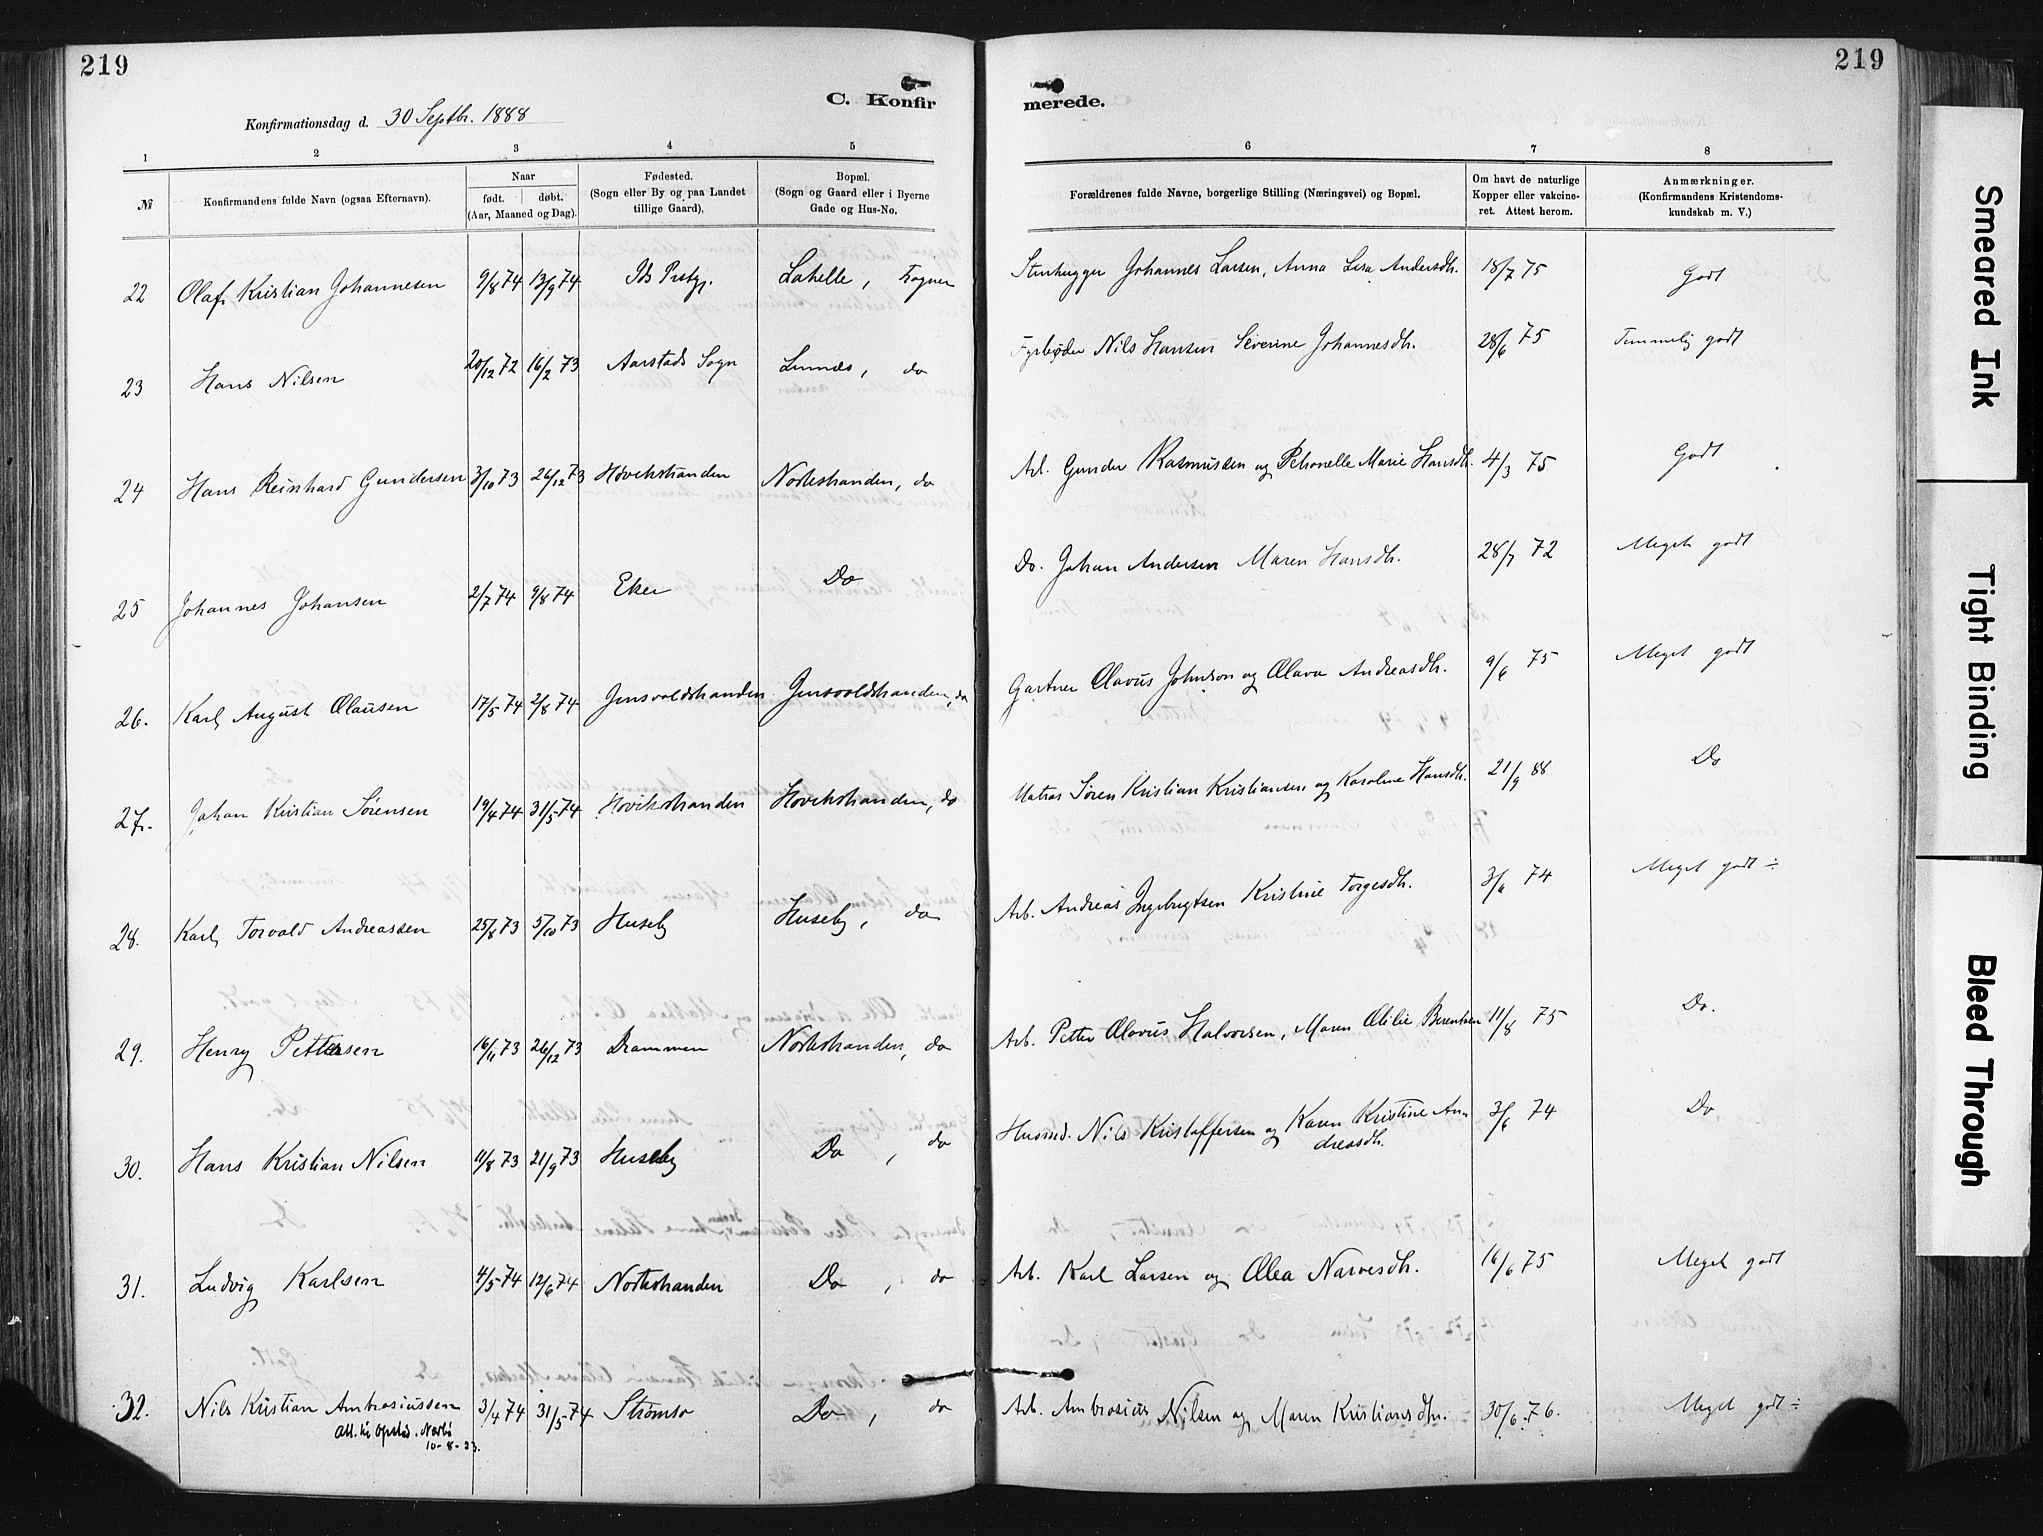 219
219
C. Konfir
merede.
Konfirmationsdag d. 30 Septbr. 1888
1 2 3 4 5 6 7 8
№
Konfirmandens fulde Navn (ogsaa Efternavn).
Naar
født. døbt.
(Aar, Maaned og Dag).
Fødested.
(Sogn eller By og paa Landet
tillige Gaard).
Bopæl.
(Sogn og Gaard eller i Byerne
Gade og Hus-No.
Forældrenes fulde Navne, borgerlige Stilling (Næringsvei) og Bopæl.
Om havt de naturlige
Kopper eller vakcine-
ret. Attest herom.
Anmærkninger.
(Konfirmandens Kristendoms-
kundskab m. V.)
22 Olaf Kristian Johannesen 9/8 74 13/9 74 Ids Prstgj. Lahelle, Sogner Stenhugger Johannes Larsen, Anna Lisa Andersdtr. 18/7 75 Godt
23 Hans Nilsen 20/12 72 16/2 73 Aarstads Sogn Lumas, do Fyrbøder Nils Hansen Severine Johannesdtr. 28/6 75 Temmelig godt
24 Hans Reinhard Gundersen 3/10 73 26/12 73 Høvikstranden Norbstranden, do Arb. Gunder Rasmussen og Petronelle Marie Hansdtr. 4/3 75 Godt
25 Johannes Johansen 2/7 74 9/8 74 Eker Do Do. Johan Andersen Maren Hansdtr. 28/7 72 Meget godt
26. Karl August Olausen 17/5 74 2/8 74 Gjusvoldstranden Gjusvoldstranden, do Gartner Olavus Johnson og Olava Andreasdtr. 9/6 75 Meget godt
27. Johan Kristian Sørensen 19/4 74 31/5 74 Hovikstranden Hovikstranden, do Matros Søren Kristian Kristiansen og Karoline Hansdtr. 21/9 88 Do
28. Karl Torvald Andreassen 25/8 73 5/10 73 Huseby Huseby, do Arb. Andreas Ingebrigtsen Kristine Torgesdtr. 3/6 74 Meget godt ÷
29. Henry Pettersen 16/11 73 26/12 73 Drammen Norbstranden, do Arb. Petter Olavus Halvorsen, Maren Otilie Berentsen 11/8 75 Do.
30. Hans Kristian Nilsen 11/8 73 21/9 73 Huseby Do, do Husmd. Nils Kristoffersen og Karen Kristine An-
dreasdtr. 3/6 74 Do
31. Ludvig Karlsen 4/5 74 12/6 74 Norbstranden Do, do Arb. Karl Larsen og Olea Narvesdtr. 16/6 75 Meget godt
32. Nils Kristian Ambrosiussen 3/4 74 31/5 74 Strømsø Do, do Arb. Ambrosius Nilsen og Maren Kristiansdtr. 30/6 76. Meget godt ÷
Att. til
10-8-33.
Smeared Ink
Tight Binding
Bleed Through